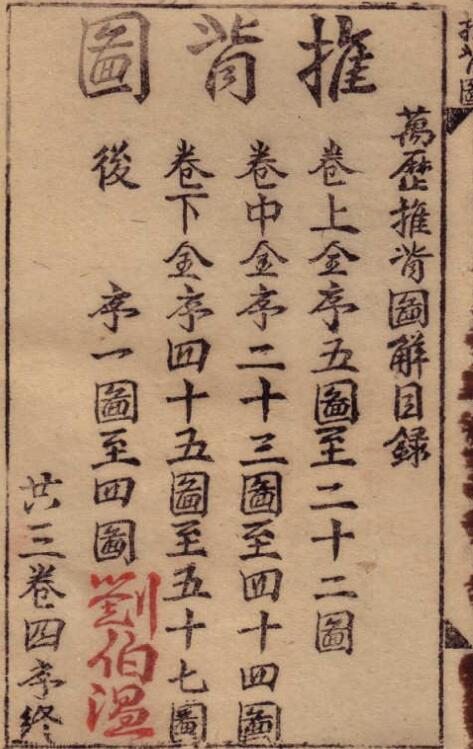 推背圖
萬歷推背圖解目錄
卷上金序五圖至二十二圖
卷中金序二十三圖至四十四圖
卷下金序四十五圖至五十七圖
後 序一圖至四圖
劉伯溫
共三卷四序終
推背圖